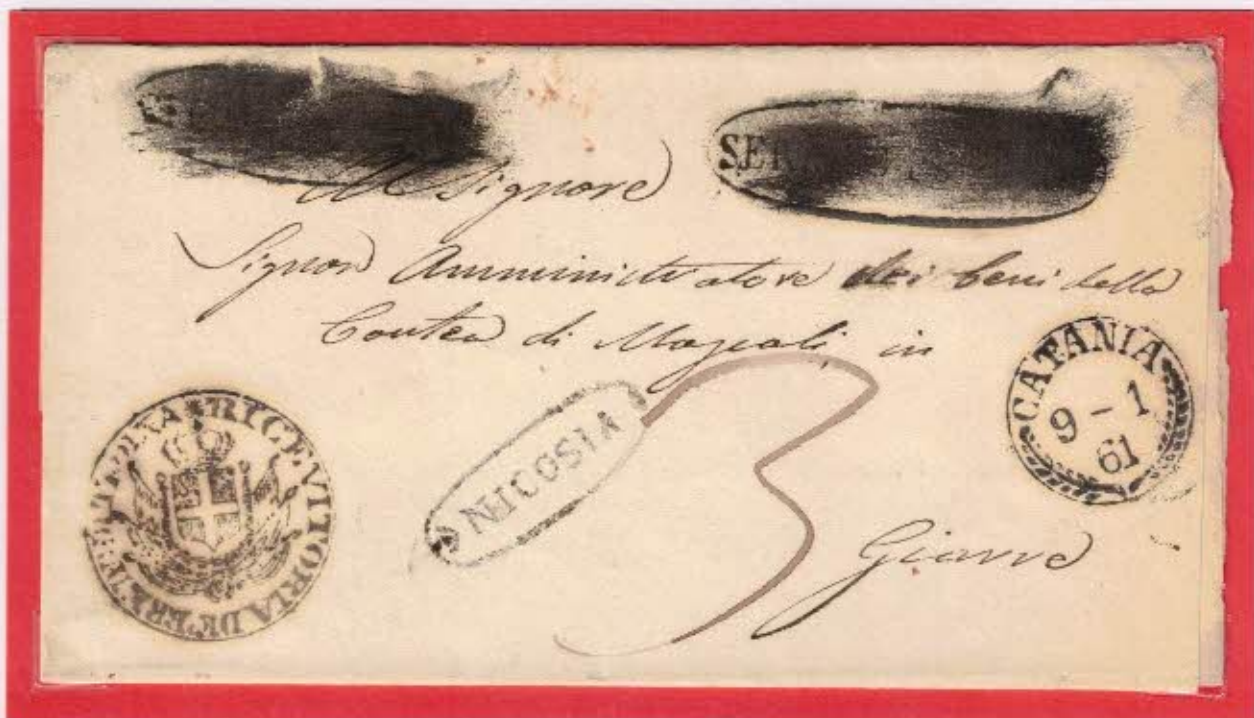 SER
Al Signore
Signor Amministratore dei beni della
Contea di Mascali in
CATANIA
9 - 1
61
NICOSIA
3
RICE. VITTORIA DE'
Giarre